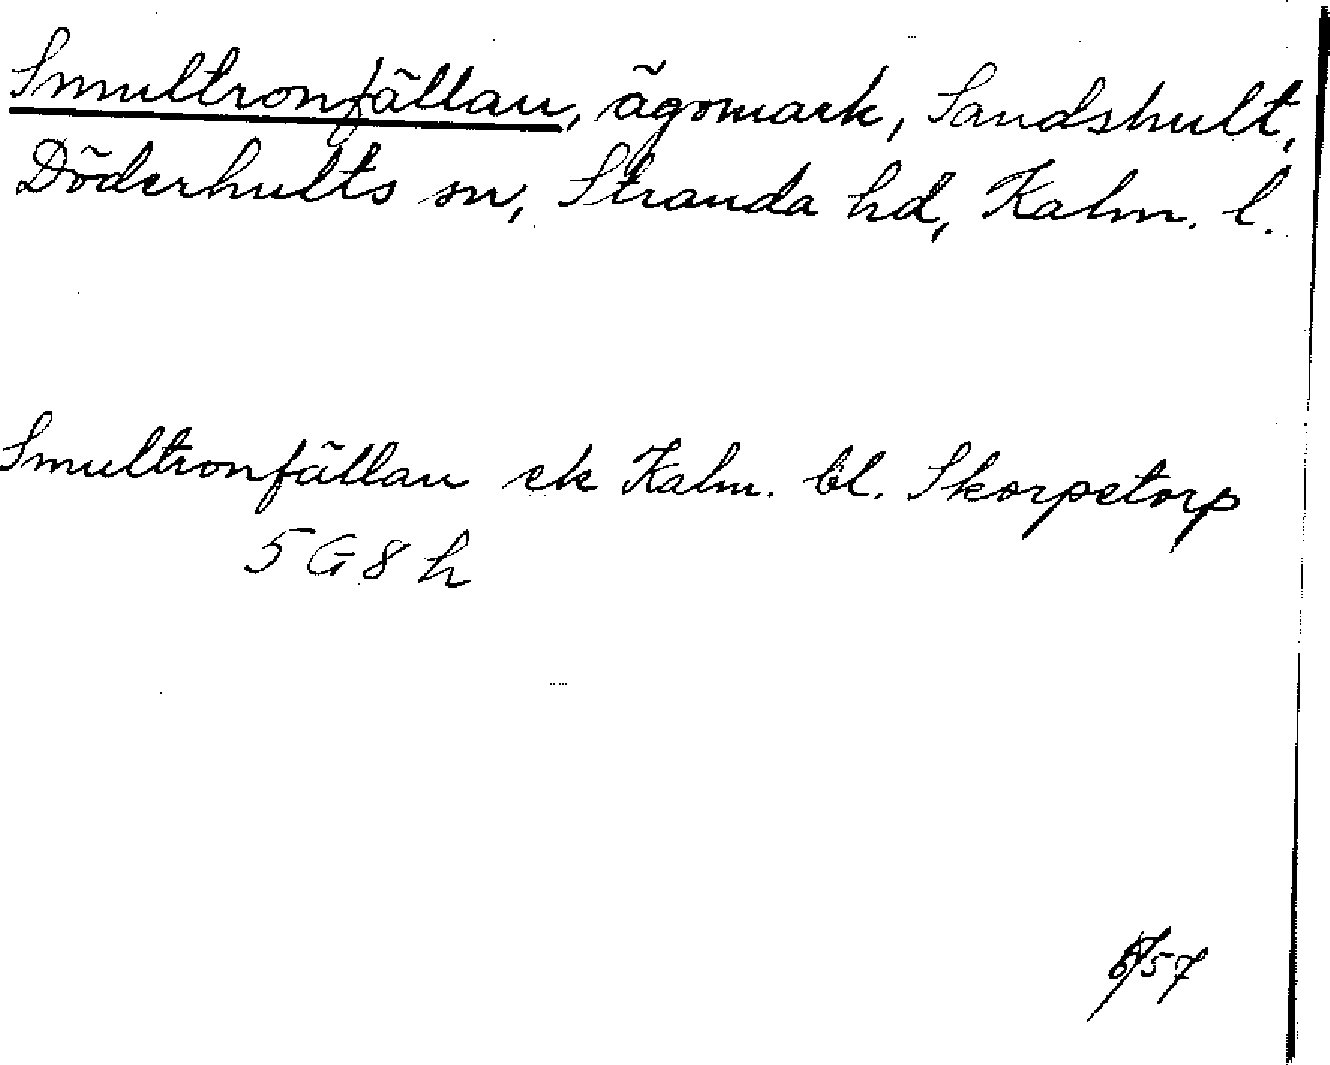 Smultronfällan, ägomark, Sandshult,
Döderhults sn, Stranda hd, Kalm. l.
Smultronfällan ek Kalm. bl. Skorpetorp
5 G 8 h
57